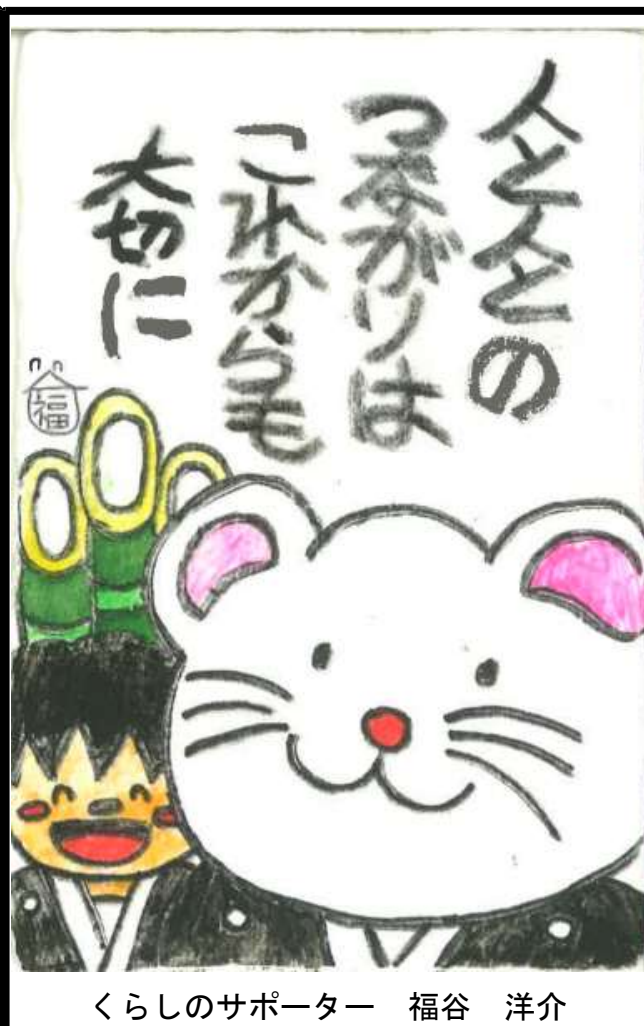 人と人との
つながりは
これからも
大切に
福
くらしのサポーター　福谷　洋介